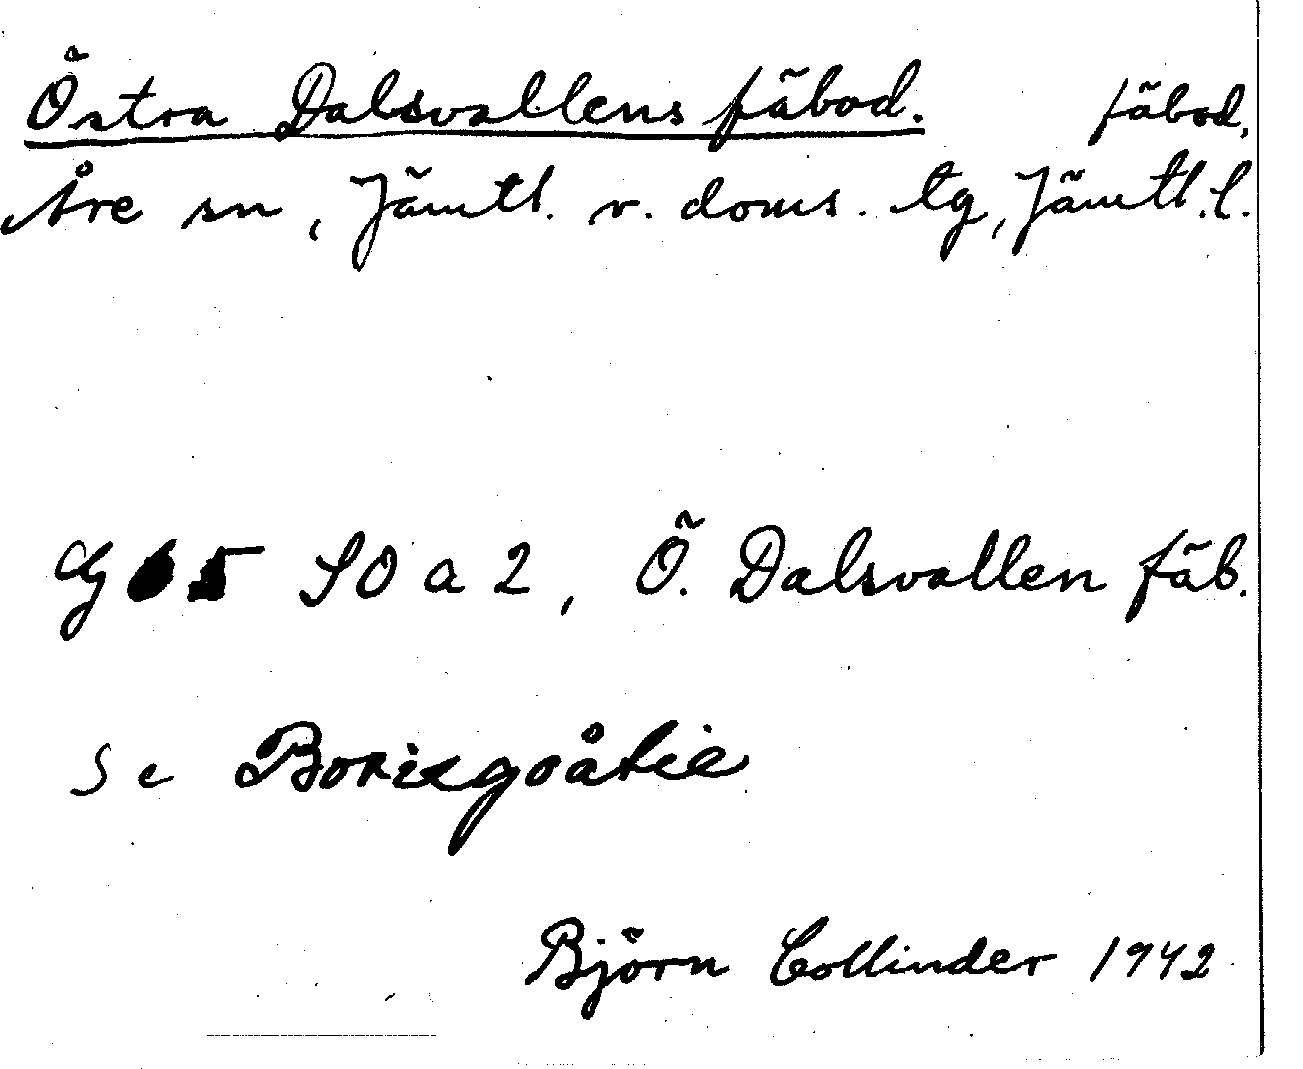 Östra Dalsvallens fäbod. fäbod,
Åre sn, Jämtl. v. doms. tg, Jämtl. l.
G 65 SO a 2, Ö. Dalsvallen fäb.
Se
Björn Collinder 1942